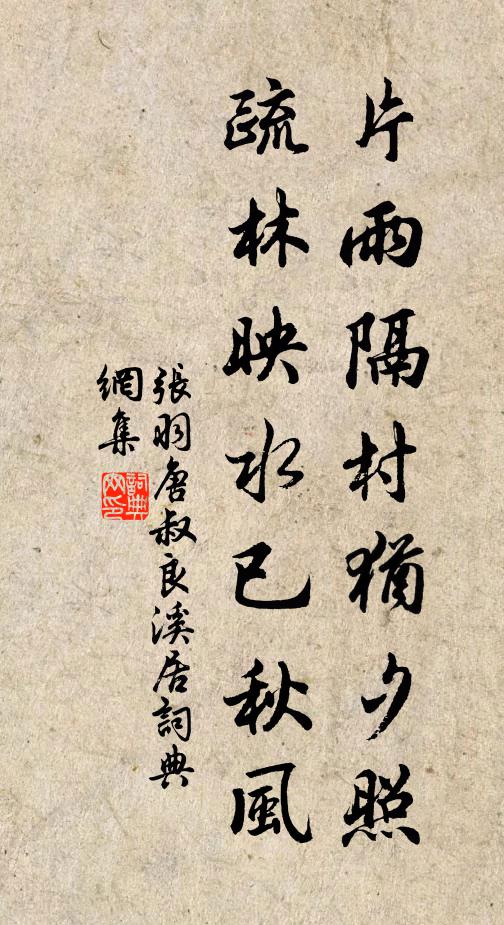 片雨隔村猶夕照
疏林映水已秋風
張羽唐叔良溪居詞典
網集
詞典
網印